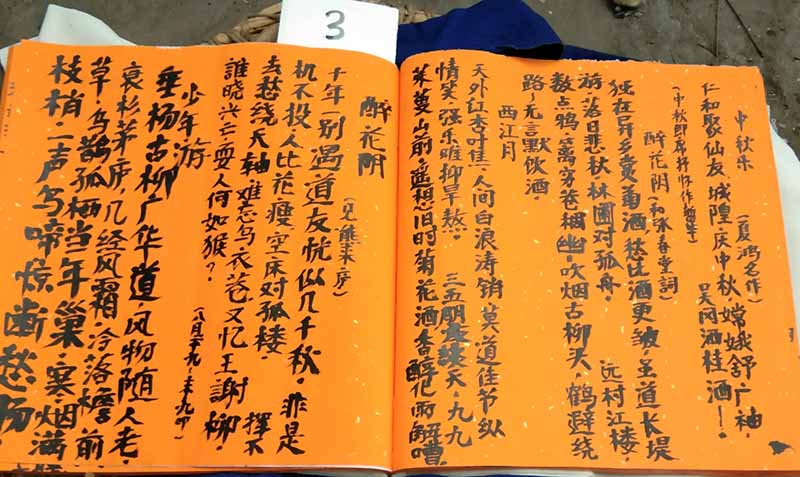 3
中秋乐 (夏鸿名作)
仁和聚仙友，城隍庆中秋，嫦娥舒广袖，
吴冈酒桂酒——！
(中秋即席抒怀作
醉花阴 (和咏春堂词)
独在异乡
菊酒愁比酒更皱，王道长堤
游，落日悲秋林圃对孤舟。 远村江楼
数点鸦，篱穷巷烟幽，吹烟古柳头，鹤辟绕
路，无言默饮酒。
西江月
天外红杏叶焦，人间白浪涛销，莫道佳节纵
情笑，强乐难抑旱熬。 三五朋
谈天，九九
茱萸山前，遥想旧时菊花酒香醇化雨解嘈。
醉花阴 (见熊来序)
十年一别遇道友，恍似几千秋，非是
机不投人，比花瘦，空床对孤楼。 挥不
去愁绕天轴，难忘乌衣巷，又忆王谢柳，
谁晓兴亡耍人何如猴？ (八月二十九
少年游
垂杨古柳广华道，风物随人老，
哀杉茅庐，几经风霜，冷落檐前
草，乌鹊孤栖当年巢，寒烟满
枝梢，一声乌啼惊断愁肠，